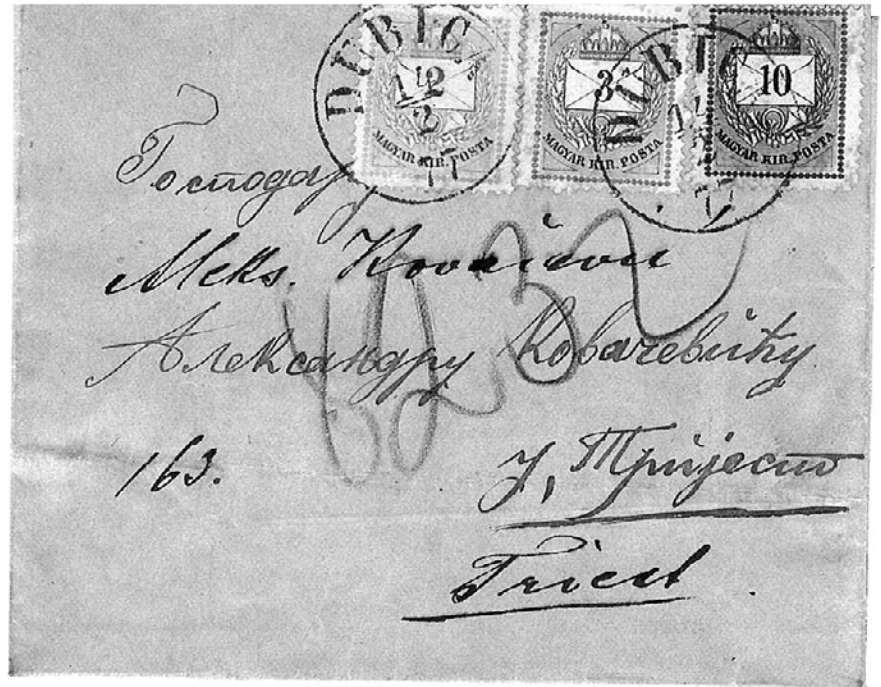 DUBIC
12
2
77
MAGYAR KIR. POSTA
3
MAGYAR KIR. POSTA
DUBIC
77
10
MAGYAR KIR. POSTA
Господару
Aleks.
Александру Ковачевићу
163.
У, Тријест
Triest